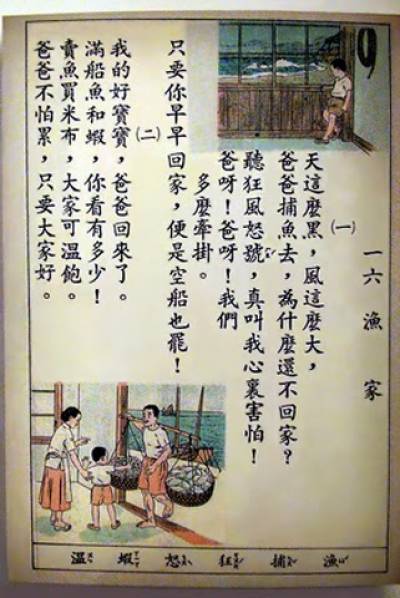 一六 漁 家
(一)
天這麼黑，風這麼大，
爸爸捕魚去，為什麼還不回家？
聽狂風怒號，真叫我心裏害怕！
爸呀！爸呀！我們
多麼牽掛。
只要你早早回家，便是空船也罷！
(二)
我的好寶寶，爸爸回來了。
滿船魚和蝦，你看有多少！
賣魚買米布，大家可溫飽。
爸爸不怕累，只要大家好。
漁 捕 狂 怒 蝦 溫